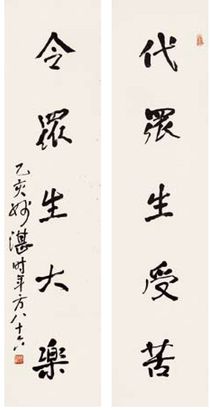 代眾生受苦
令眾生大樂
乙亥妙湛时年方八十六